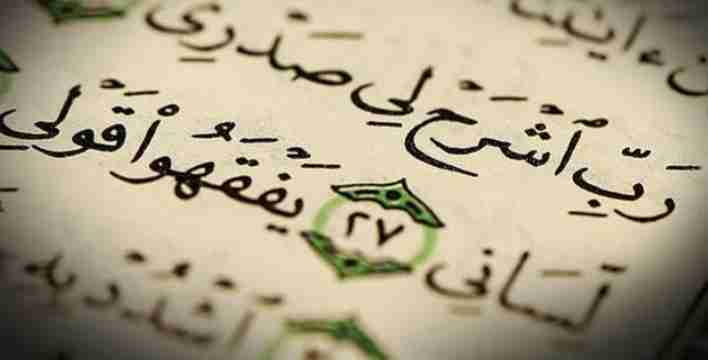 رَبِّ ٱشْرَحْ لِي صَدْرِي
لِّسَانِي ٢٧ يَفْقَهُوا۟ قَوْلِي
ٱشْدُدْ بِهِۦ